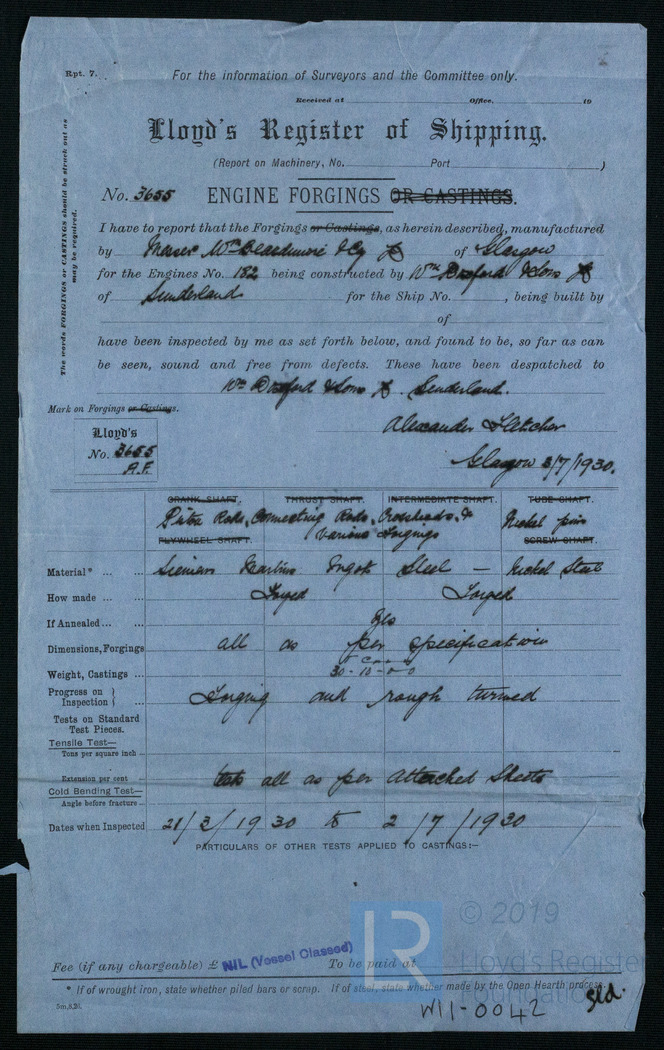 Rpt. 7.
For the information of Surveyors and the Committee only.
Received at Office, 19
Lloyd's Register of Shipping.
(Report on Machinery, No. Port )
No. 3655 ENGINE FORGINGS OR CASTINGS.
The words FORGINGS or CASTINGS should be struck out as
may be required.
I have to report that the Forgings or Castings, as herein described, manufactured
by Messrs Wm Beardmore & Co of Glasgow
for the Engines No. 182 being constructed by Wm Doxford & Sons
of Sunderland for the Ship No. , being built by
of
have been inspected by me as set forth below, and found to be, so far as can
be seen, sound and free from defects. These have been despatched to
Wm Doxford & Sons Sunderland.
Mark on Forgings or Castings.
Alexander Fletcher
Lloyd's
No. 3655
A.F.
Glasgow 3/7/1930.
CRANK SHAFT. THRUST SHAFT. INTERMEDIATE SHAFT. TUBE SHAFT.
Piston Rods, Connecting Rods, Crossheads, & Nickel pins
various Forgings
FLYWHEEL SHAFT. SCREW SHAFT.
Material* ... ... Siemens Martins Ingot Steel — Nickel Steel
How made ... ... Forged Forged
If Annealed ... ... Yes
Dimensions, Forgings all as per specification
T C
Weight, Castings ... 30-13-0-0
Progress on Inspection } Forging and rough turned
Tests on Standard
Test Pieces.
Tensile Test—
Tons per square inch
Extension per cent tests all as per attached Sheets
Cold Bending Test—
Angle before fracture
Dates when Inspected 21/3/1930 to 2/7/1930
PARTICULARS OF OTHER TESTS APPLIED TO CASTINGS:—
© 2019
LR
Lloyd's Register
Foundation
Fee (if any chargeable) £ NIL (Vessel Classed) To be paid at
* If of wrought iron, state whether piled bars or scrap. If of steel, state whether made by the Open Hearth process.
5m,8,26.
W11-0042